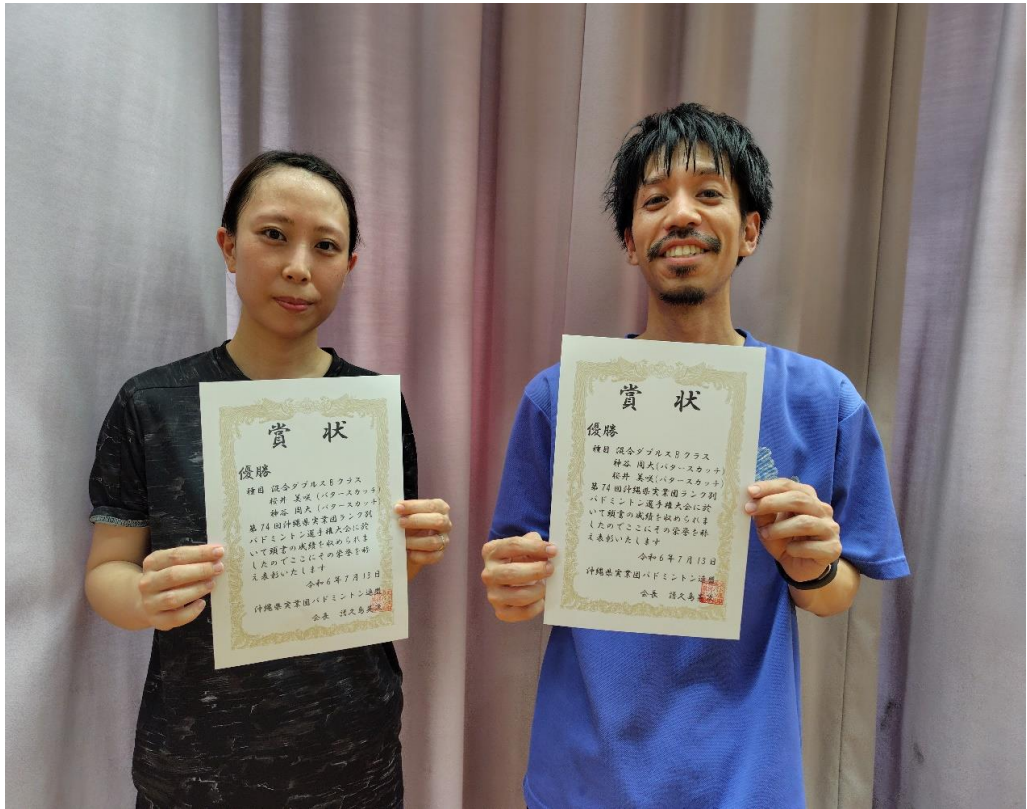 賞 状
優勝
種目 混合ダブルスBクラス
桜井 美咲(バタースカッチ)
神谷 周大(バタースカッチ)
第74回沖縄県実業団ランク別
バドミントン選手権大会に於
いて頭書の成績を収められま
したのでここにその栄誉を称
え表彰いたします
令和6年7月13日
沖縄県実業団バドミントン連盟
会長
賞 状
優勝
種目 混合ダブルスBクラス
神谷 周大(バタースカッチ)
桜井 美咲(バタースカッチ)
第74回沖縄県実業団ランク別
バドミントン選手権大会に於
いて頭書の成績を収められま
したのでここにその栄誉を称
え表彰いたします
令和6年7月13日
沖縄県実業団バドミントン連盟
会長